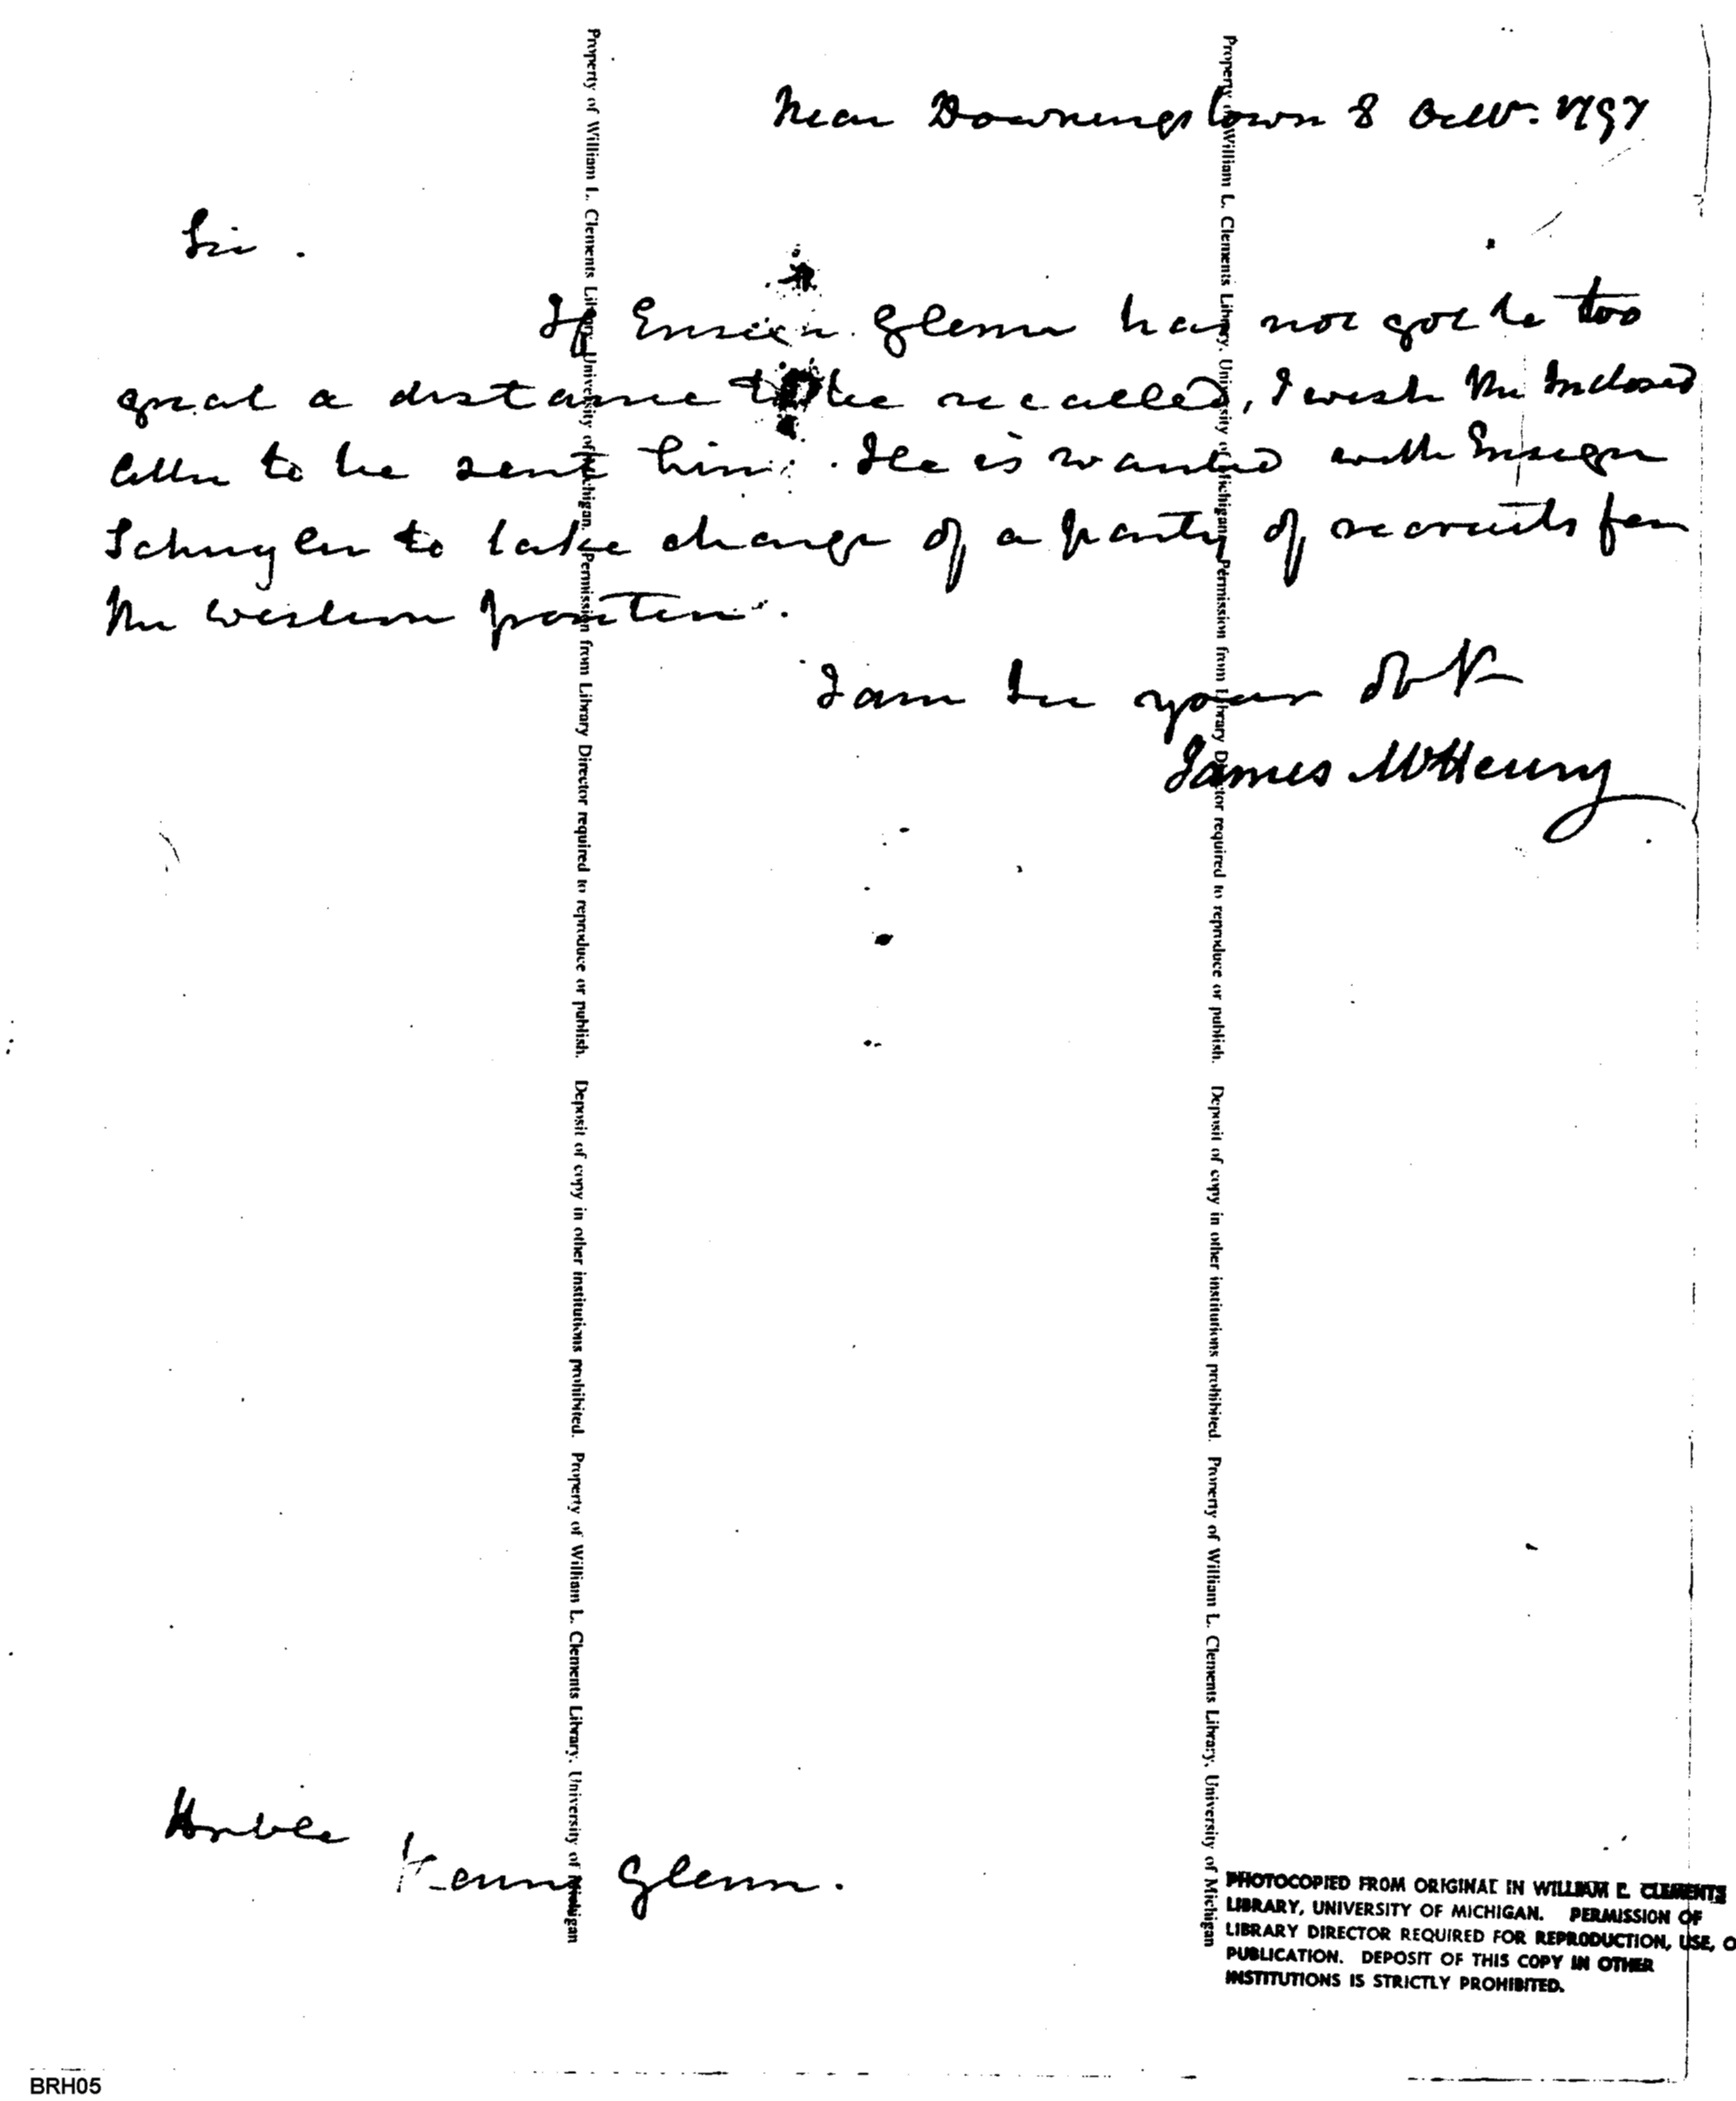 Near Downingstown 8 Octbr. 1797
Sir.
If Ensign Glenn has not got to too
great a distance to be recalled, I wish the Inclosed
letter to be sent him. He is wanted with Ensign
Schuyler to take charge of a party of recruits for
the western frontier.
I am Sir your Obt
James McHenry
Honble
Henry Glenn.
Property of William L. Clements Library, University of Michigan. Permission from Library Director required to reproduce or publish. Deposit of copy in other institutions prohibited. Property of William L. Clements Library, University of Michigan
Property of William L. Clements Library, University of Michigan. Permission from Library Director required to reproduce or publish. Deposit of copy in other institutions prohibited. Property of William L. Clements Library, University of Michigan
PHOTOCOPIED FROM ORIGINAL IN WILLIAM L. CLEMENTS
LIBRARY, UNIVERSITY OF MICHIGAN. PERMISSION OF
LIBRARY DIRECTOR REQUIRED FOR REPRODUCTION, USE, O
PUBLICATION. DEPOSIT OF THIS COPY IN OTHER
INSTITUTIONS IS STRICTLY PROHIBITED.
BRH05